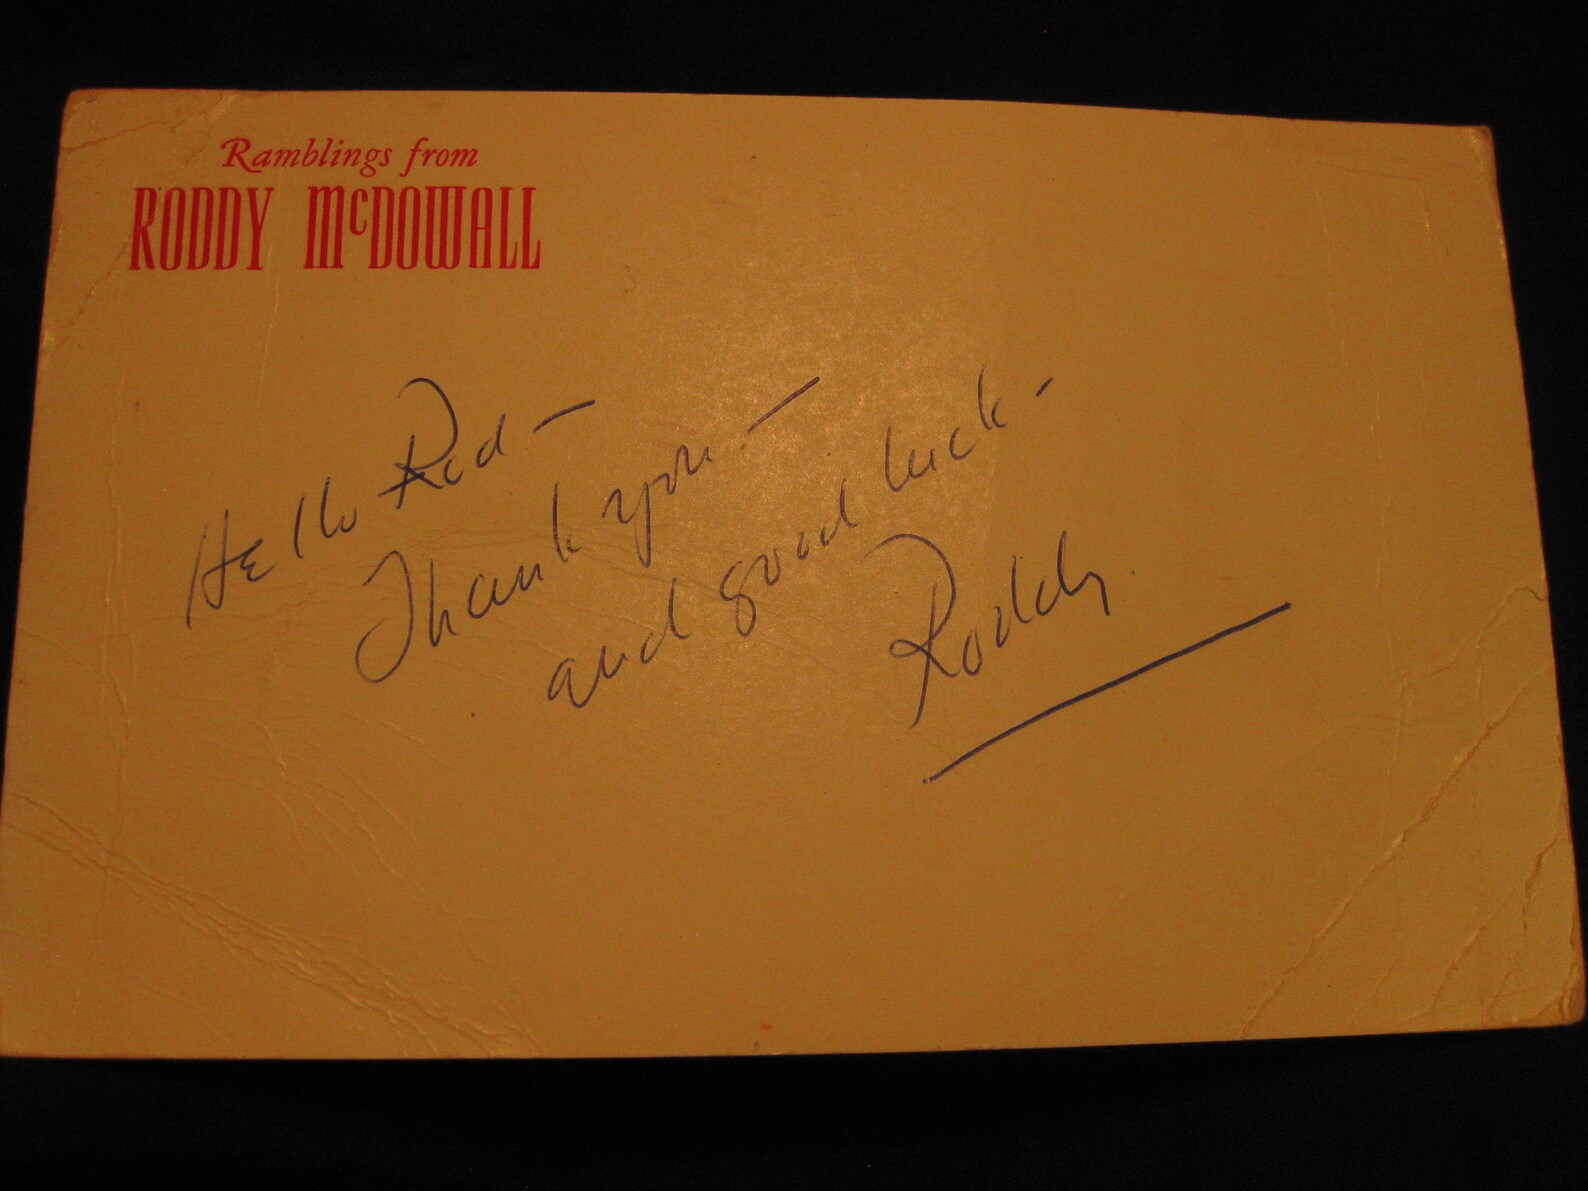 Ramblings from
RODDY McDOWALL
Hello Rod –
Thank you. –
and good luck –
Roddy